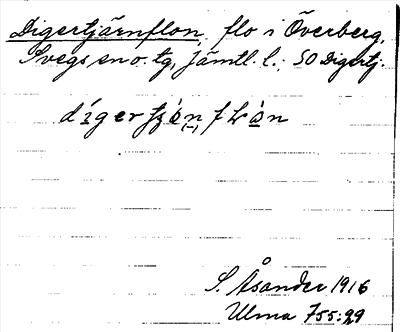 Digertjärnflon, flo i Överberg,
Svegs sn o. tg, Jämtl. l.; SO Digertj.
S. Åsander 1916
Ulma 755:29